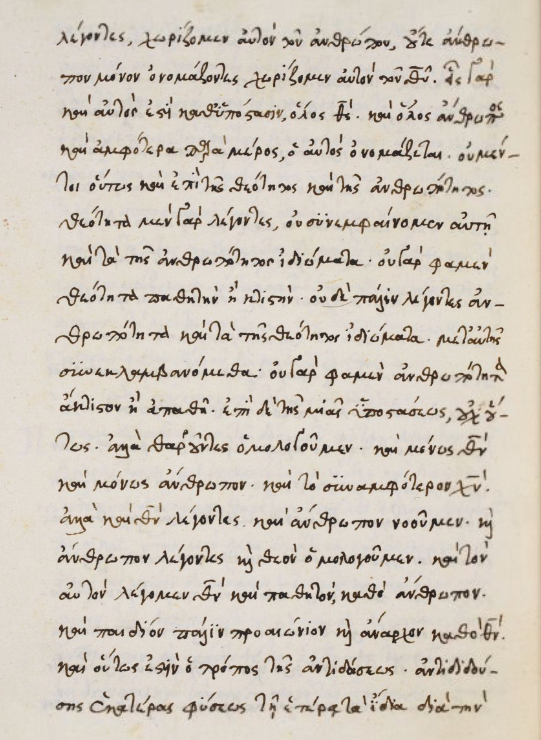 λέγοντες, χωρίζομεν αὐτὸν τοῦ ἀνθρώπου, οὔτε ἄνθρω-
πον μόνον ὀνομάζοντες χωρίζομεν αὐτὸν τοῦ θ̅υ̅.
καὶ αὐτὸς ἐστὶ καθ' ὑπόστασιν, ὅλος θ̅ς̅. καὶ ὅλος ἄνθρωπος
καὶ ἀμφότερα μέρος, ὁ αὐτὸς ὀνομάζεται. οὐ μέν-
τοι οὕτως καὶ ἐπὶ τῆς θεότητος καὶ τῆς ἀνθρωπότητος.
θεότητα μὲν γὰρ λέγοντες, οὐ συνεμφαίνομεν αὐτῇ
καὶ τὰ τῆς ἀνθρωπότητος ἰδιώματα. οὐ γὰρ φαμὲν
θεότητα παθητὴν ἢ κτιστήν. οὐδὲ πάλιν λέγοντες ἀν-
θρωπότητα καὶ τὰ τῆς θεότητος ἰδιώματα. μετ' αὐτῆς
συνεκλαμβανόμεθα. οὐ γὰρ φαμὲν ἀνθρωπότητα
ἄκτιστον ἢ ἀπαθῆ. ἐπὶ δὲ τῆς μιᾶς ὑποστάσεως, οὐχ οὕ-
τως. ἀλλὰ θαῤῥοῦντες ὁμολογοῦμεν. καὶ μόνως θ̅ν̅
καὶ μόνως ἄνθρωπον. καὶ τὸ συναμφότερον χ̅ν̅.
ἀλλὰ καὶ θ̅ν̅ λέγοντες. καὶ ἄνθρωπον νοοῦμεν. κὴ
ἄνθρωπον λέγοντες κὴ θεὸν ὁμολογοῦμεν. καὶ τὸν
αὐτὸν λέγομεν θ̅ν̅ καὶ παθητὸν, καθὸ ἄνθρωπον.
καὶ παιδίον πάλιν προαιώνιον κὴ ἄναρχον καθὸ θ̅ν̅.
καὶ οὕτως ἐστὶν ὁ τρόπος τῆς ἀντιδόσεως. ἀντιδιδού-
σης ἑκατέρας φύσεως τῇ ἑτέρᾳ τὰ ἴδια διὰ τὴν